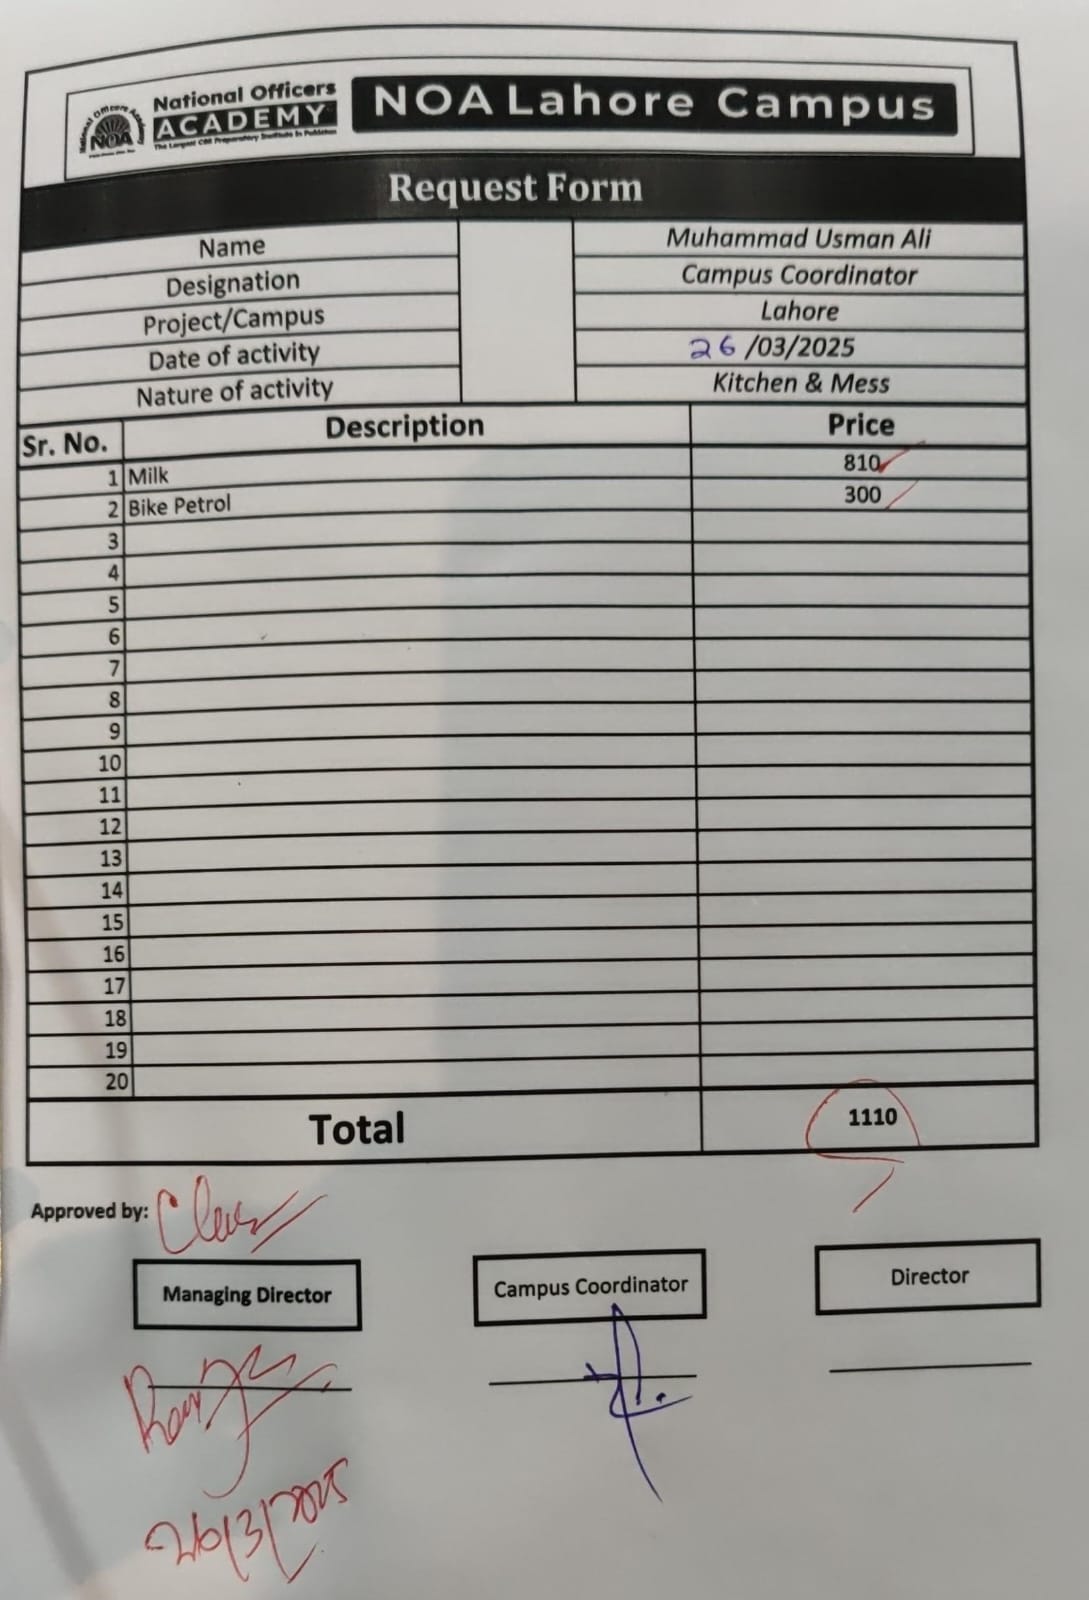 National Officers
ACADEMY
The Largest CSS Preparatory Institute In Pakistan
NOA
NOA Lahore Campus
Request Form
Name Muhammad Usman Ali
Designation Campus Coordinator
Project/Campus Lahore
Date of activity 26/03/2025
Nature of activity Kitchen & Mess
Sr. No. Description Price
1 Milk 810
2 Bike Petrol 300
3
4
5
6
7
8
9
10
11
12
13
14
15
16
17
18
19
20
Total 1110
Approved by:
Managing Director Campus Coordinator Director
26/3/2025